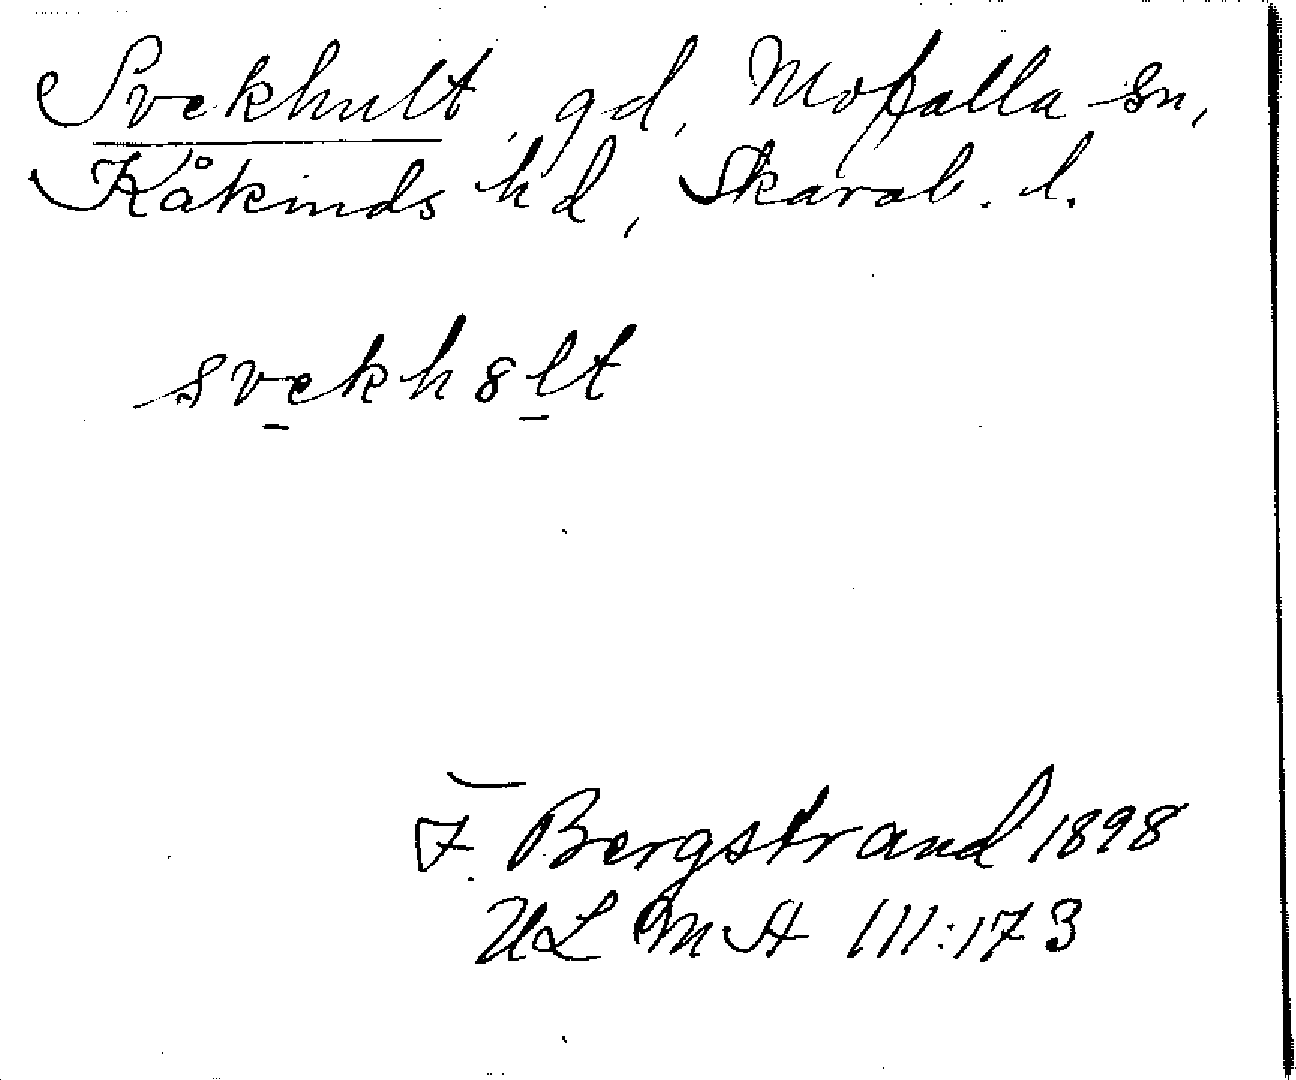 Svekhult, gd, Mofalla sn,
Kåkinds hd, Skarab. l.
svekh8lt
F. Bergstrand 1898
ULMA 111:173